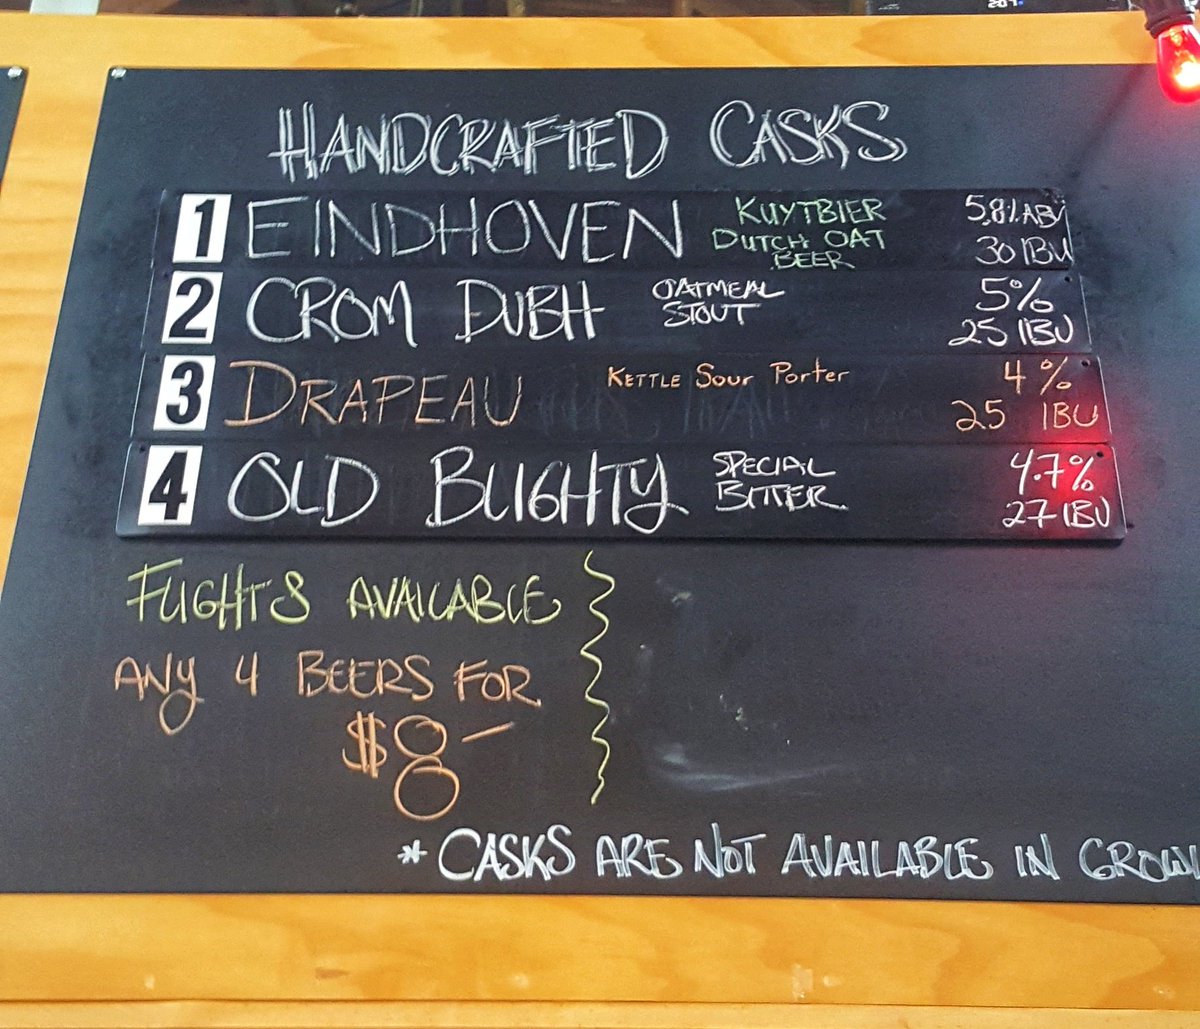 HANDCRAFTED CASKS
1 EINDHOVEN KUYTBIER 5.8% ABV
DUTCH OAT 30 IBU
BEER
2 CROM DUBH OATMEAL 5%
STOUT 25 IBU
3 DRAPEAU KETTLE Sour Porter 4%
25 IBU
4 OLD BLIGHTY SPECIAL 4.7%
BITTER 27 IBU
FLIGHTS AVAILABLE
ANY 4 BEERS FOR
$8-
* CASKS ARE NOT AVAILABLE IN GROW